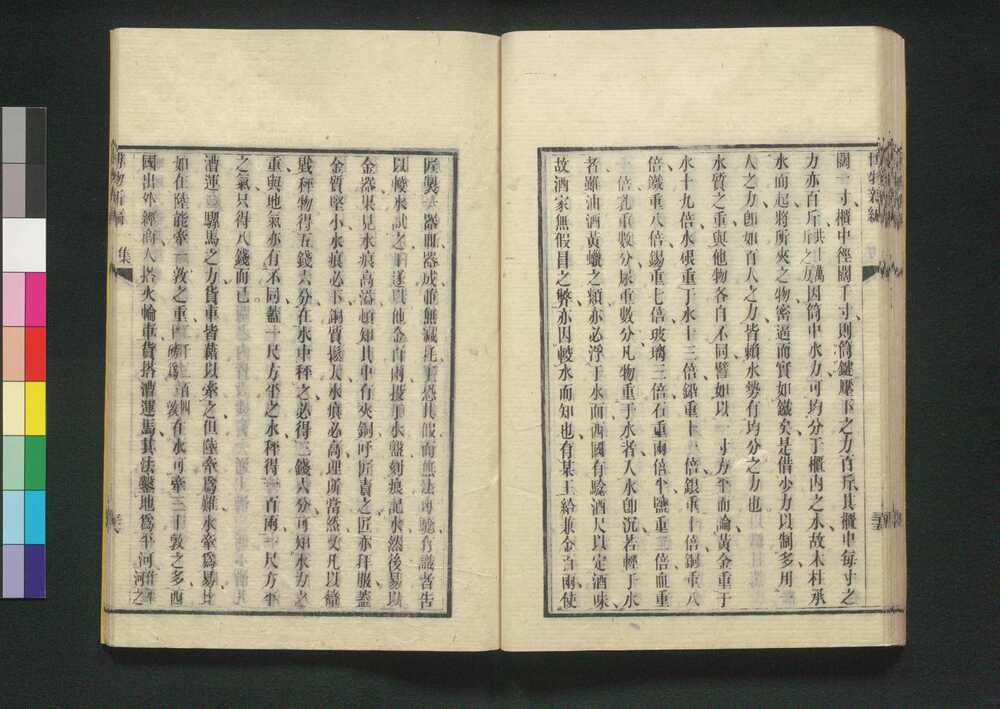 博物新編
闊一寸櫃中徑闊千寸則筒鍵壓下之力百斤其櫃中每寸之
力亦百斤共十萬斤之力因筒中水力可均分于櫃内之水故木杜承
水而起將所夾之物密逼而實如鐵矣是借少力以制多用
人之力卽如百人之力皆賴水勢有均分之力也
水質之重與他物各自不同譬如以一寸方平而論黃金重于
水十九倍水銀重于水十三倍鉛重十一倍銀重十倍銅重八
倍鐵重八倍錫重七倍玻璃三倍石重兩倍半鹽重二倍血重
一倍乳重數分尿重數分凡物重于水者入水卽沉若輕于水
者雖油酒黃蠟之類亦必浮于水面西國有驗酒尺以定酒味
故酒家無假冒之弊亦因較水而知也有某王給兼金百兩使
匠製一器皿器成惟無減耗又恐其假而無法可驗有識者告
以較水試之王遂以他金百兩投于水盤刻痕記水然後易以
金器果見水痕高溢頓知其中有夾銅呼匠責之匠亦拜服蓋
金質堅小水痕必下銅質鬆大水痕必高理所當然矣凡以釐
戥秤物得五錢六分在水中秤之必得三錢六分可知水力之
重與地氣亦有不同蓋十尺方平之水秤得一百兩十尺方平
之氣只得八錢而已
漕運 騾馬之力貨車皆藉以牽之但陸牽爲難水牽爲易比
如在陸能牽一敦之重一千六百八十斤爲一敦在水可牽三十敦之多西
國出外經商人搭火輪車貨搭漕運馬其法鑿地爲平河河之
博物新編
集